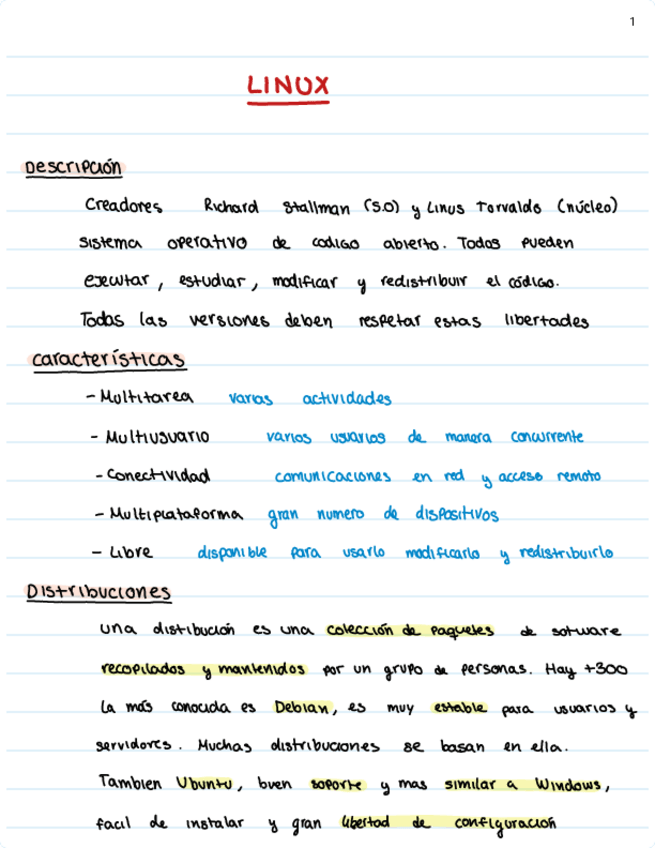 1
LINUX
Descripción
Creadores Richard Stallman (S.O) y Linus Torvalds (núcleo)
sistema operativo de codigo abierto. Todos pueden
ejecutar, estudiar, modificar y redistribuir el código.
Todas las versiones deben respetar estas libertades
características
- Multitarea varias actividades
- Multiusuario varios usuarios de manera concurrente
- Conectividad comunicaciones en red y acceso remoto
- Multiplataforma gran numero de dispositivos
- Libre disponible para usarlo modificarlo y redistribuirlo
Distribuciones
una distribución es una colección de paquetes de sotware
recopilados y mantenidos por un grupo de personas. Hay +300
La más conocida es Debian, es muy estable para usuarios y
servidores. Muchas distribuciones se basan en ella.
Tambien Ubuntu, buen soporte y mas similar a Windows,
facil de instalar y gran libertad de configuración